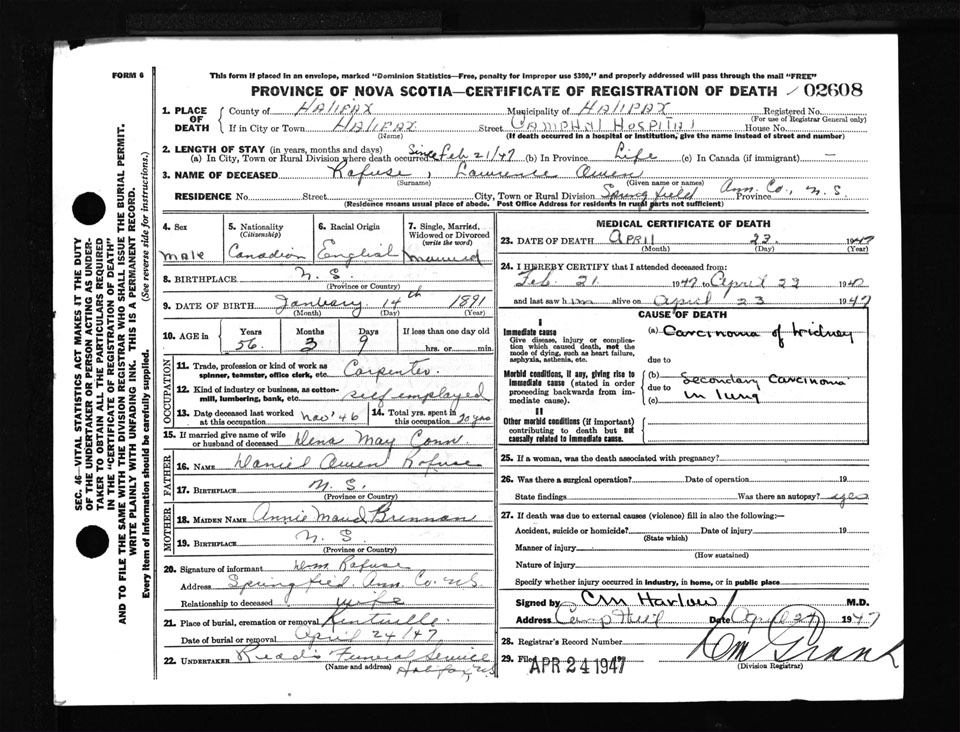 FORM 6
This form if placed in an envelope, marked "Dominion Statistics—Free, penalty for improper use $300," and properly addressed will pass through the mail "FREE"
PROVINCE OF NOVA SCOTIA—CERTIFICATE OF REGISTRATION OF DEATH 02608
SEC. 46—VITAL STATISTICS ACT MAKES IT THE DUTY
OF THE UNDERTAKER OR PERSON ACTING AS UNDER-
TAKER TO OBTAIN ALL THE PARTICULARS REQUIRED
IN THE "CERTIFICATE OF REGISTRATION OF DEATH"
AND TO FILE THE SAME WITH THE DIVISION REGISTRAR WHO SHALL ISSUE THE BURIAL PERMIT.
WRITE PLAINLY WITH UNFADING INK. THIS IS A PERMANENT RECORD.
Every item of information should be carefully supplied. (See reverse side for instructions.)
1. PLACE OF DEATH
County of Halifax Municipality of Halifax Registered No.
(For use of Registrar General only)
If in City or Town Halifax Street Camp Hill Hospital House No.
(Name) (If death occurred in a hospital or institution, give the name instead of street and number)
2. LENGTH OF STAY (in years, months and days)
(a) In City, Town or Rural Division where death occurred Since Feb 21/47 (b) In Province Life (c) In Canada (if immigrant) —
3. NAME OF DECEASED Rafuse, Lawrence Owen
(Surname) (Given name or names)
RESIDENCE No. Street City, Town or Rural Division Springfield Province Ann. Co., N.S.
(Residence means usual place of abode. Post Office Address for residents in rural parts not sufficient)
4. Sex
male
5. Nationality
(Citizenship)
Canadian
6. Racial Origin
English
7. Single, Married,
Widowed or Divorced
(write the word)
Married
8. BIRTHPLACE N.S.
(Province or Country)
9. DATE OF BIRTH January 14th 1891
(Month) (Day) (Year)
10. AGE in
Years Months Days If less than one day old
56 3 9 hrs. or min.
OCCUPATION
11. Trade, profession or kind of work as
spinner, teamster, office clerk, etc. Carpenter
12. Kind of industry or business, as cotton-
mill, lumbering, bank, etc. self employed
13. Date deceased last worked
at this occupation Nov' 46
14. Total yrs. spent in
this occupation 20 yrs
15. If married give name of wife
or husband of deceased Dena May Conn
FATHER
16. NAME Daniel Owen Rafuse
17. BIRTHPLACE N.S.
(Province or Country)
MOTHER
18. MAIDEN NAME Annie Maud Brennan
19. BIRTHPLACE N.S.
(Province or Country)
20. Signature of informant Rafuse
Address Springfield. Ann. Co. N.S.
Relationship to deceased wife
21. Place of burial, cremation or removal Kentville
Date of burial or removal April 24/47
22. UNDERTAKER Read's Funeral Service
(Name and address) Halifax, N.S.
MEDICAL CERTIFICATE OF DEATH
23. DATE OF DEATH April 23 1947
(Month) (Day) (Year)
24. I HEREBY CERTIFY that I attended deceased from:
Feb. 21 1947 to April 23 1947
and last saw him alive on April 23 1947
CAUSE OF DEATH
I
Immediate cause
Give disease, injury or complica-
tion which caused death, not the
mode of dying, such as heart failure,
asphyxia, asthenia, etc.
(a) Carcinoma of kidney
due to
Morbid conditions, if any, giving rise to
immediate cause (stated in order
proceeding backwards from im-
mediate cause).
(b)
due to Secondary Carcinoma
(c) in lung
II
Other morbid conditions (if important)
contributing to death but not
causally related to immediate cause.
25. If a woman, was the death associated with pregnancy?
26. Was there a surgical operation? Date of operation 19
State findings Was there an autopsy? yes
27. If death was due to external causes (violence) fill in also the following:—
Accident, suicide or homicide? Date of injury 19
(State which)
Manner of injury
(How sustained)
Nature of injury
Specify whether injury occurred in industry, in home, or in public place
Signed by CM Harlow M.D.
Address Camp Hill Date April 24 1947
28. Registrar's Record Number
29. Filed APR 24 1947
(Division Registrar)